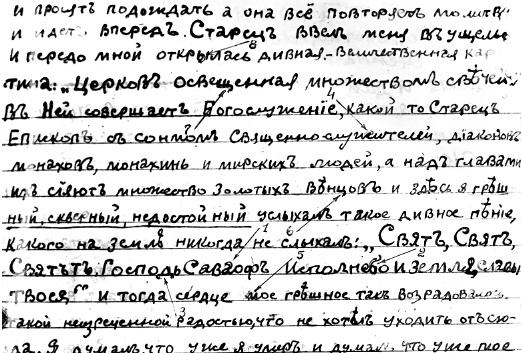 и просятъ подождать а она всё повторяетъ молитву
и идетъ впередъ. Старецъ ввелъ меня въ ущелье
и передо мной открылась дивная-величественная кар
тина: „Церковъ освещенная множествомъ свѣчей
8
въ Ней совершаетъ Богослужение, какой то Старецъ
4
Епископъ съ сонмомъ Священнослужителей, дiаконовъ
монаховъ, монахинь и мирскихъ людей, а надъ главами
ихъ сiяютъ множество золотыхъ Вѣнцовъ и здѣсь я грѣш
ный, скверный, недостойный услыхалъ такое дивное пѣнiе,
1
какого на землѣ никогда не слыхалъ: „Святъ, Святъ,
6
Святъ Господь Саваофъ Исполнено и Земля славы
5 2
Твоея" и тогда сердце мое грѣшное такъ возрадовалось
такой неизреченной радостью, что не хотѣлъ уходить отъсю-
3
да. Я думалъ, что уже я умеръ и думалъ что уже мое